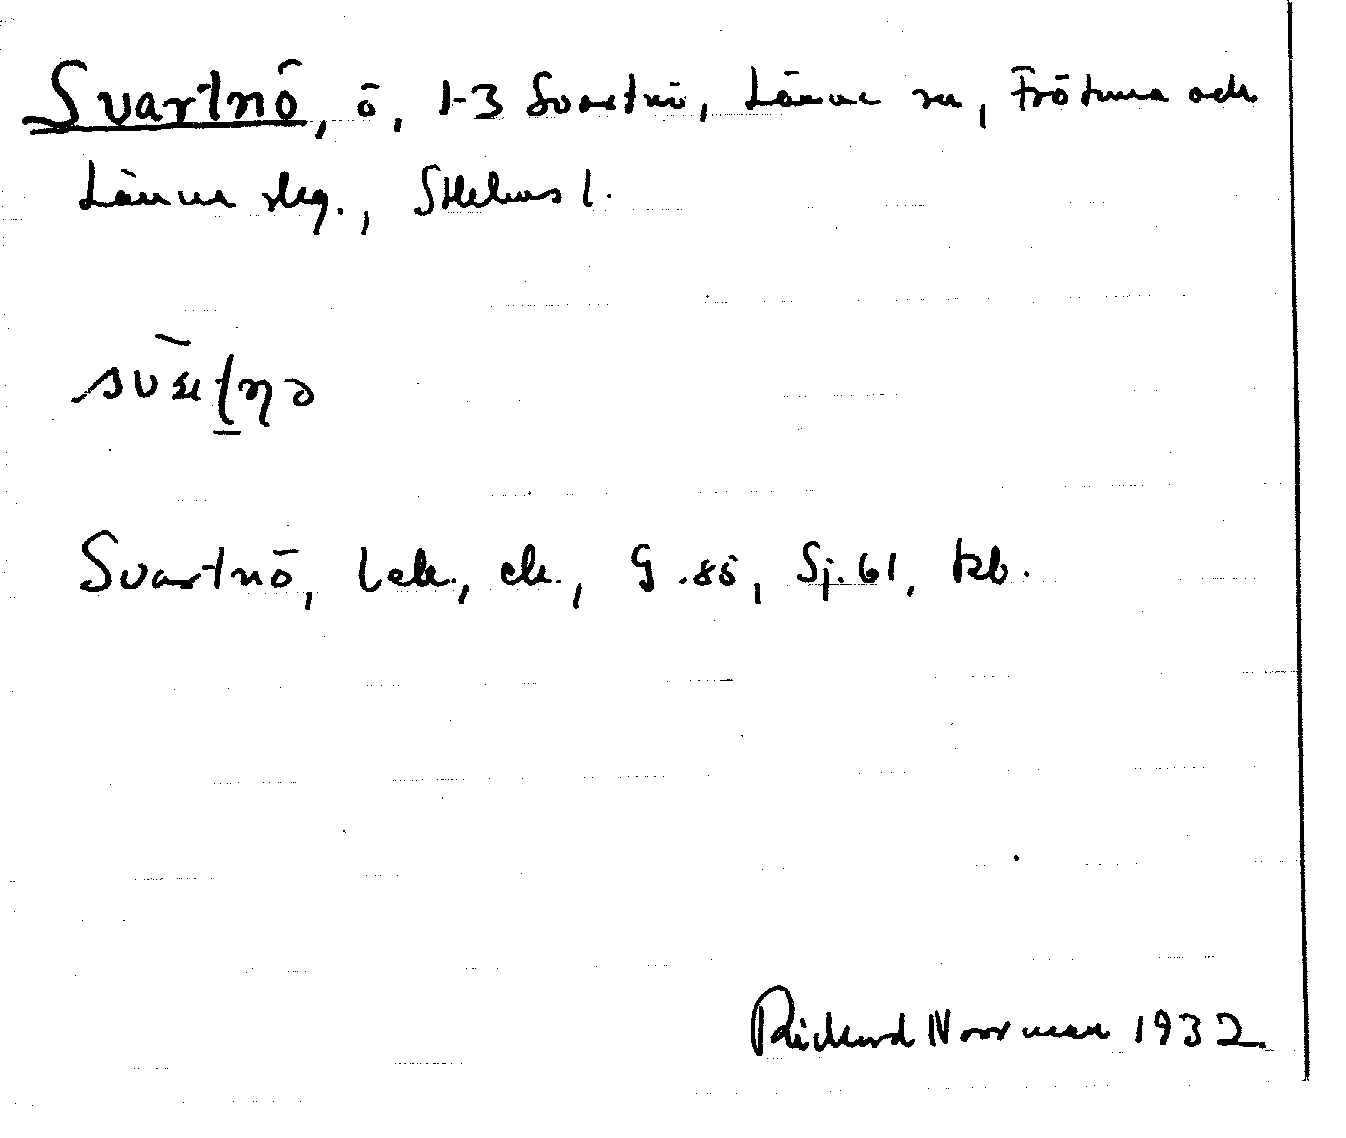 Svartnö, ö, 1-3 Svartnö, Länna sn, Frötuna och
Länna skg., Sthlms l.
Svartnö, lek., ek., G.85, Sj.61, tkb.
Rickard Norrman 1932